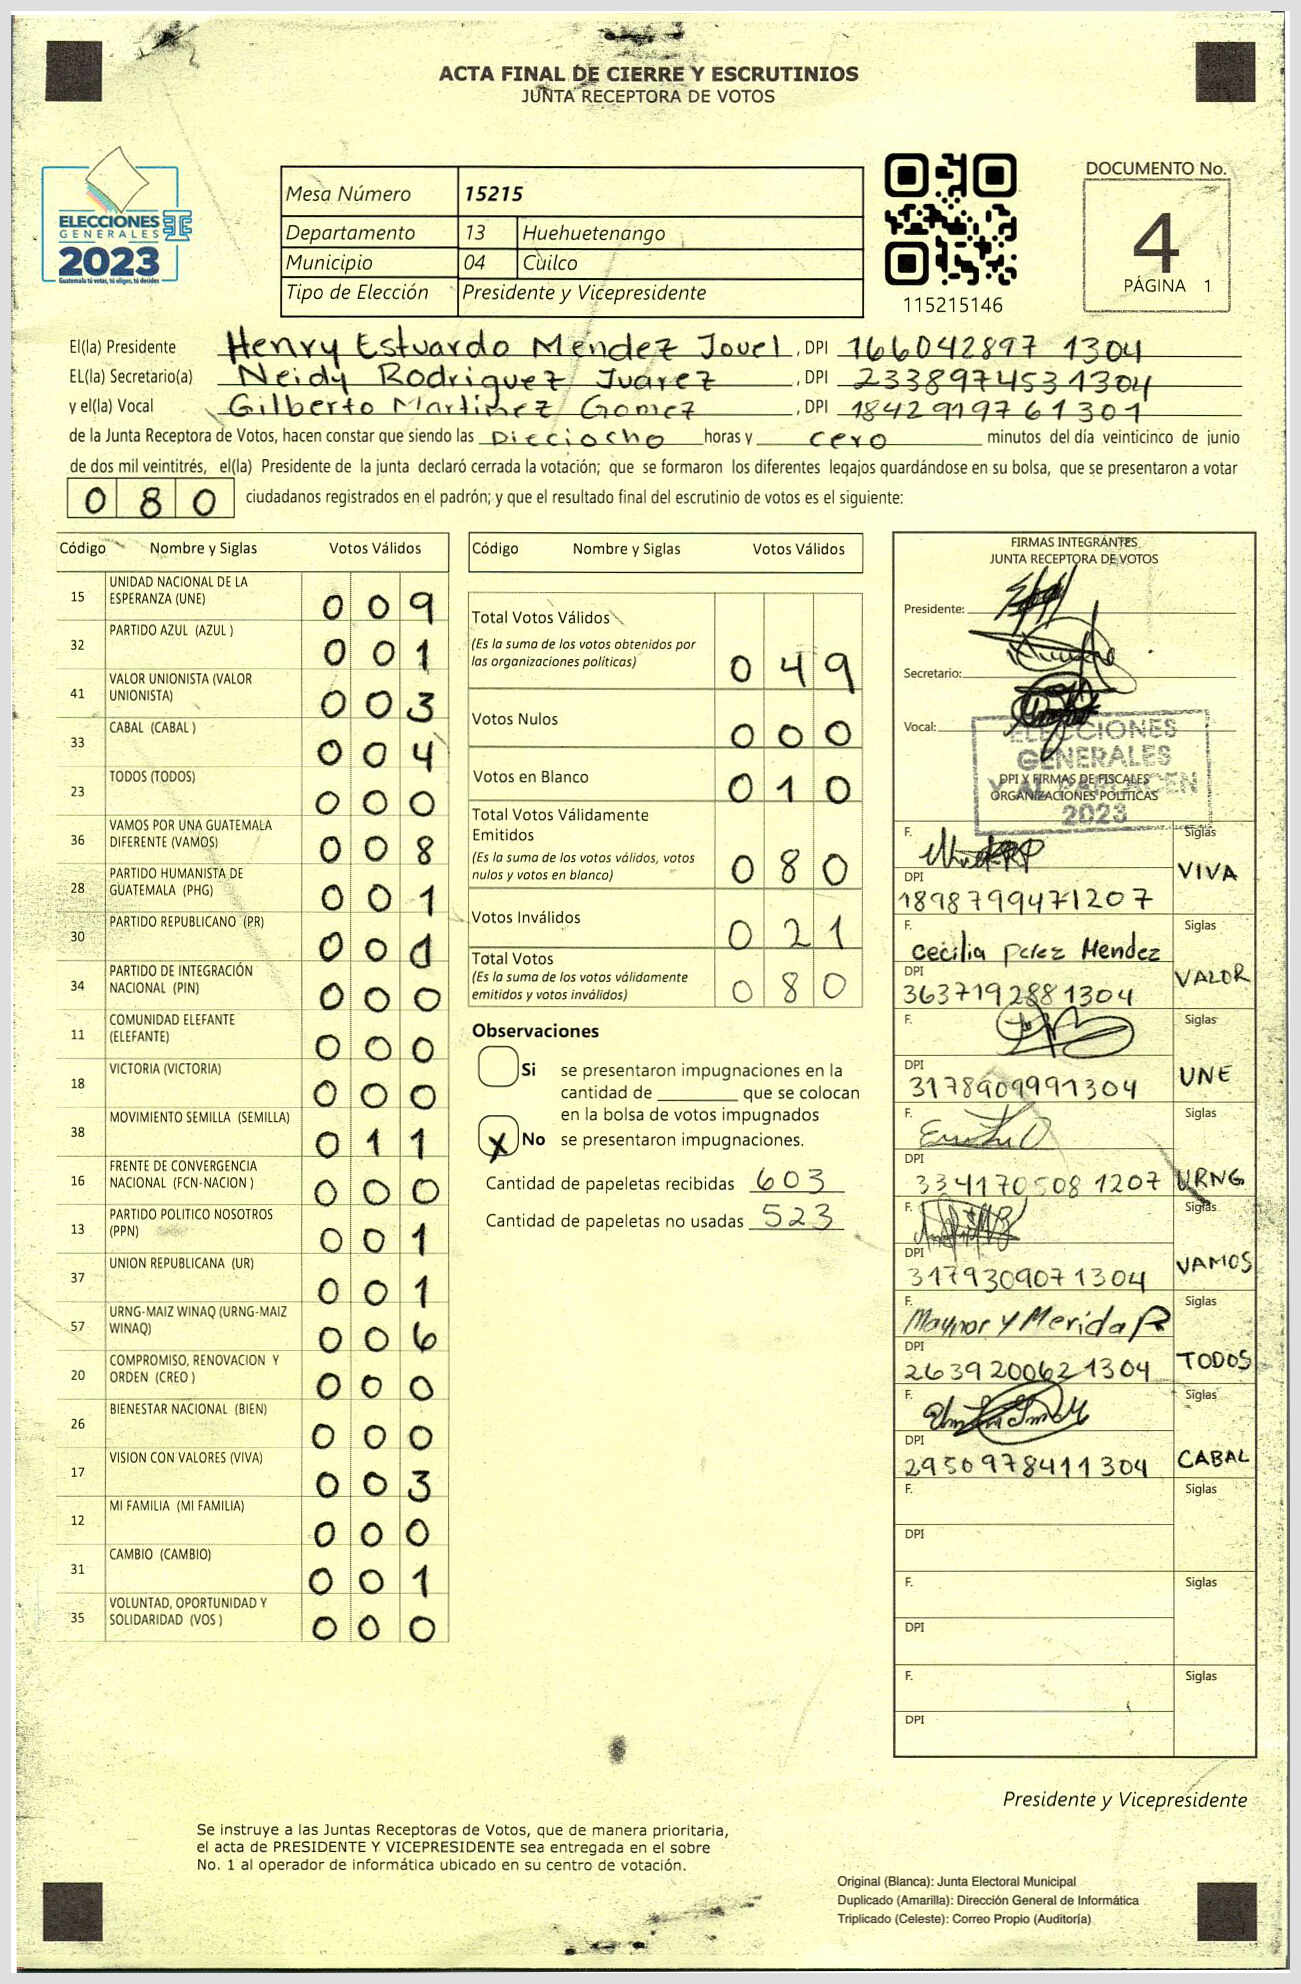 ACTA FINAL DE CIERRE Y ESCRUTINIOS
JUNTA RECEPTORA DE VOTOS
ELECCIONES
GENERALES
2023
Guatemala tú votas, tú eliges, tú decides
Mesa Número 15215
Departamento 13 Huehuetenango
Municipio 04 Cuilco
Tipo de Elección Presidente y Vicepresidente
115215146
DOCUMENTO No.
4
PÁGINA 1
El(la) Presidente Henry Estuardo Mendez Jouel , DPI 166042897 1304
EL(la) Secretario(a) Neidy Rodriguez Juarez , DPI 2338974531304
y el(la) Vocal Gilberto Martinez Gomez , DPI 1842919761301
de la Junta Receptora de Votos, hacen constar que siendo las Dieciocho horas y cero minutos del día veinticinco de junio
de dos mil veintitrés, el(la) Presidente de la junta declaró cerrada la votación; que se formaron los diferentes legajos quardándose en su bolsa, que se presentaron a votar
0 8 0 ciudadanos registrados en el padrón; y que el resultado final del escrutinio de votos es el siguiente:
Código Nombre y Siglas Votos Válidos
15 UNIDAD NACIONAL DE LA
ESPERANZA (UNE) 0 0 9
32 PARTIDO AZUL (AZUL ) 0 0 1
41 VALOR UNIONISTA (VALOR
UNIONISTA) 0 0 3
33 CABAL (CABAL ) 0 0 4
23 TODOS (TODOS) 0 0 0
36 VAMOS POR UNA GUATEMALA
DIFERENTE (VAMOS) 0 0 8
28 PARTIDO HUMANISTA DE
GUATEMALA (PHG) 0 0 1
30 PARTIDO REPUBLICANO (PR) 0 0
34 PARTIDO DE INTEGRACIÓN
NACIONAL (PIN) 0 0 0
11 COMUNIDAD ELEFANTE
(ELEFANTE) 0 0 0
18 VICTORIA (VICTORIA) 0 0 0
38 MOVIMIENTO SEMILLA (SEMILLA) 0 1 1
16 FRENTE DE CONVERGENCIA
NACIONAL (FCN-NACION ) 0 0 0
13 PARTIDO POLITICO NOSOTROS
(PPN) 0 0 1
37 UNION REPUBLICANA (UR) 0 0 1
57 URNG-MAIZ WINAQ (URNG-MAIZ
WINAQ) 0 0 6
20 COMPROMISO, RENOVACION Y
ORDEN (CREO ) 0 0 0
26 BIENESTAR NACIONAL (BIEN) 0 0 0
17 VISION CON VALORES (VIVA) 0 0 3
12 MI FAMILIA (MI FAMILIA) 0 0 0
31 CAMBIO (CAMBIO) 0 0 1
35 VOLUNTAD, OPORTUNIDAD Y
SOLIDARIDAD (VOS ) 0 0 0
Código Nombre y Siglas Votos Válidos
Total Votos Válidos
(Es la suma de los votos obtenidos por
las organizaciones políticas) 0 4 9
Votos Nulos 0 0 0
Votos en Blanco 0 1 0
Total Votos Válidamente
Emitidos
(Es la suma de los votos válidos, votos
nulos y votos en blanco) 0 8 0
Votos Inválidos 0 2 1
Total Votos
(Es la suma de los votos válidamente
emitidos y votos inválidos) 0 8 0
Observaciones
Si se presentaron impugnaciones en la
cantidad de ________ que se colocan
en la bolsa de votos impugnados
X No se presentaron impugnaciones.
Cantidad de papeletas recibidas 603
Cantidad de papeletas no usadas 523
FIRMAS INTEGRANTES
JUNTA RECEPTORA DE VOTOS
Presidente:
Secretario:
Vocal:
ELECCIONES
GENERALES
Y AL PARLACEN
2023
DPI Y FIRMAS DE FISCALES
ORGANIZACIONES POLÍTICAS
F. Siglas
DPI VIVA
1898799471207
F. Cecilia Perez Mendez Siglas
DPI VALOR
3637192881304
F. Siglas
DPI UNE
3178909991304
F. Siglas
DPI URNG
334170508 1207
F. Siglas
DPI VAMOS
3179309071304
F. Maynor y Merida R Siglas
DPI TODOS
2639200621304
F. Siglas
DPI CABAL
2950978411304
F. Siglas
DPI
F. Siglas
DPI
F. Siglas
DPI
Presidente y Vicepresidente
Se instruye a las Juntas Receptoras de Votos, que de manera prioritaria,
el acta de PRESIDENTE Y VICEPRESIDENTE sea entregada en el sobre
No. 1 al operador de informática ubicado en su centro de votación.
Original (Blanca): Junta Electoral Municipal
Duplicado (Amarilla): Dirección General de Informática
Triplicado (Celeste): Correo Propio (Auditoría)